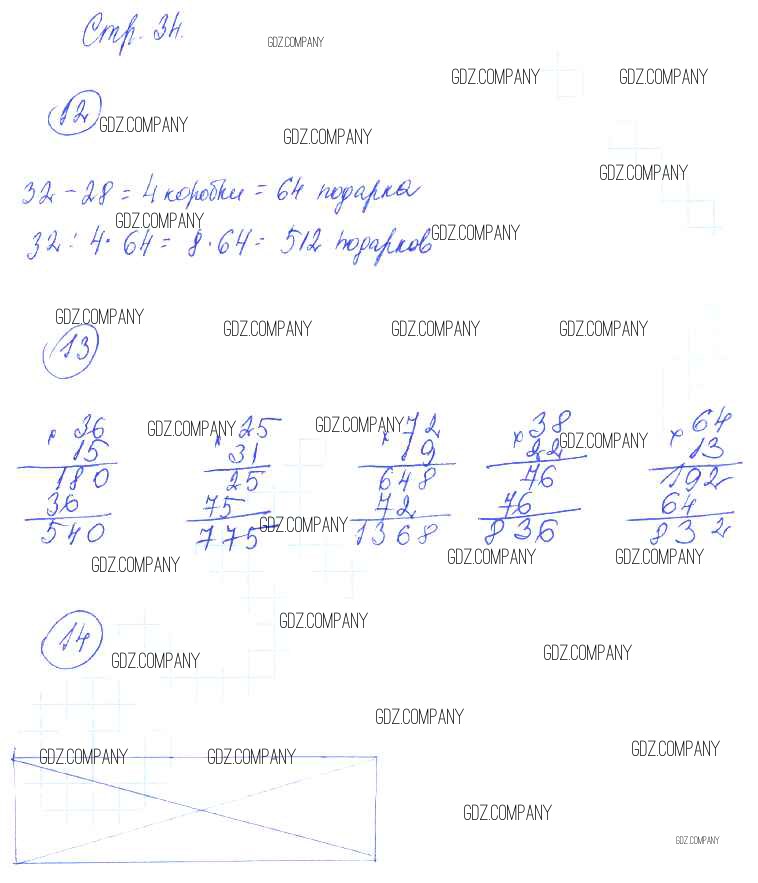 Стр. 34.
GDZ.COMPANY
GDZ.COMPANY GDZ.COMPANY
12 GDZ.COMPANY GDZ.COMPANY
GDZ.COMPANY
32 - 28 = 4 коробки = 64 подарка
GDZ.COMPANY GDZ.COMPANY
32 : 4 · 64 = 8 · 64 = 512 подарков
GDZ.COMPANY GDZ.COMPANY GDZ.COMPANY GDZ.COMPANY
13
GDZ.COMPANY GDZ.COMPANY GDZ.COMPANY
× 36 × 25 × 72 × 38 × 64
15 31 19 22 13
180 25 648 76 192
36 75 72 76 64
540 775 1368 836 832
GDZ.COMPANY
GDZ.COMPANY GDZ.COMPANY GDZ.COMPANY
GDZ.COMPANY
14
GDZ.COMPANY GDZ.COMPANY
GDZ.COMPANY
GDZ.COMPANY GDZ.COMPANY GDZ.COMPANY
GDZ.COMPANY
GDZ.COMPANY